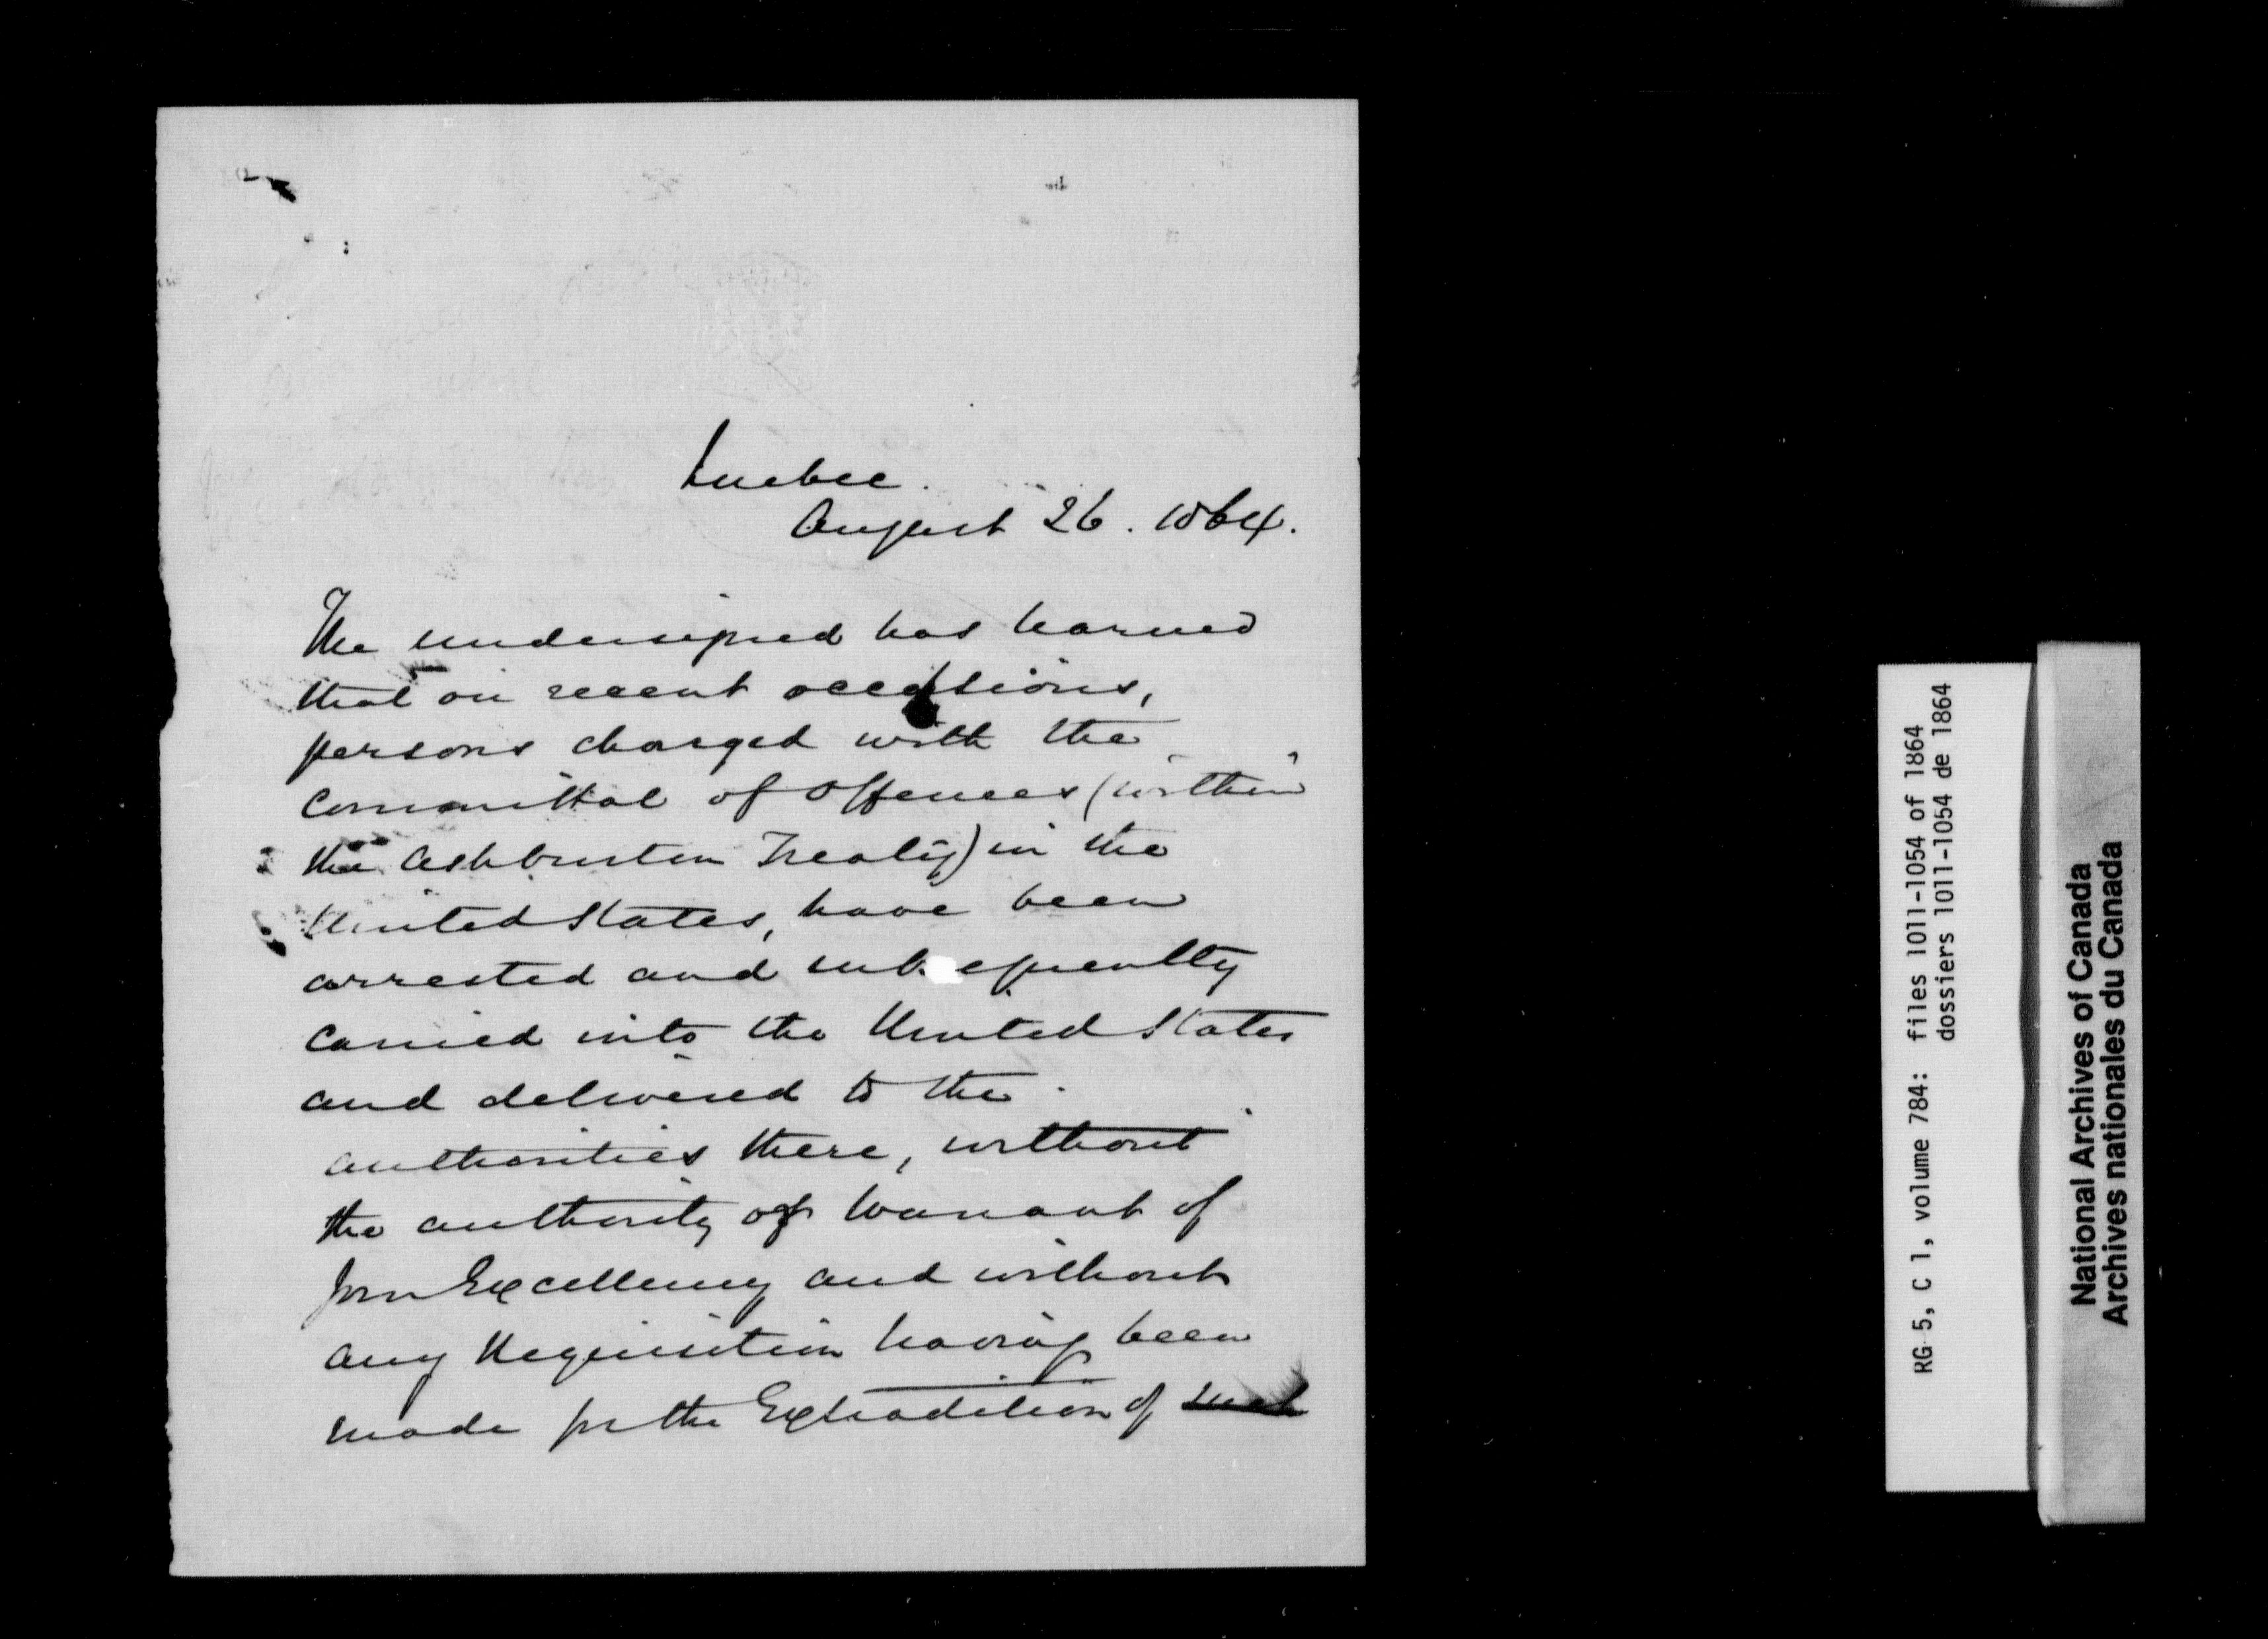 Quebec.
August 26. 1864.
The undersigned has learned
that on recent occasions,
persons charged with the
committal of offences (within
the Ashburton Treaty) in the
United States, have been
arrested and subsequently
carried into the United States
and delivered to the
authorities there, without
the authority of Warrant of
Your Excellency and without
any Requisition having been
made for the Extradition of such
RG 5, C 1, volume 784: files 1011-1054 of 1864
dossiers 1011-1054 de 1864
National Archives of Canada
Archives nationales du Canada